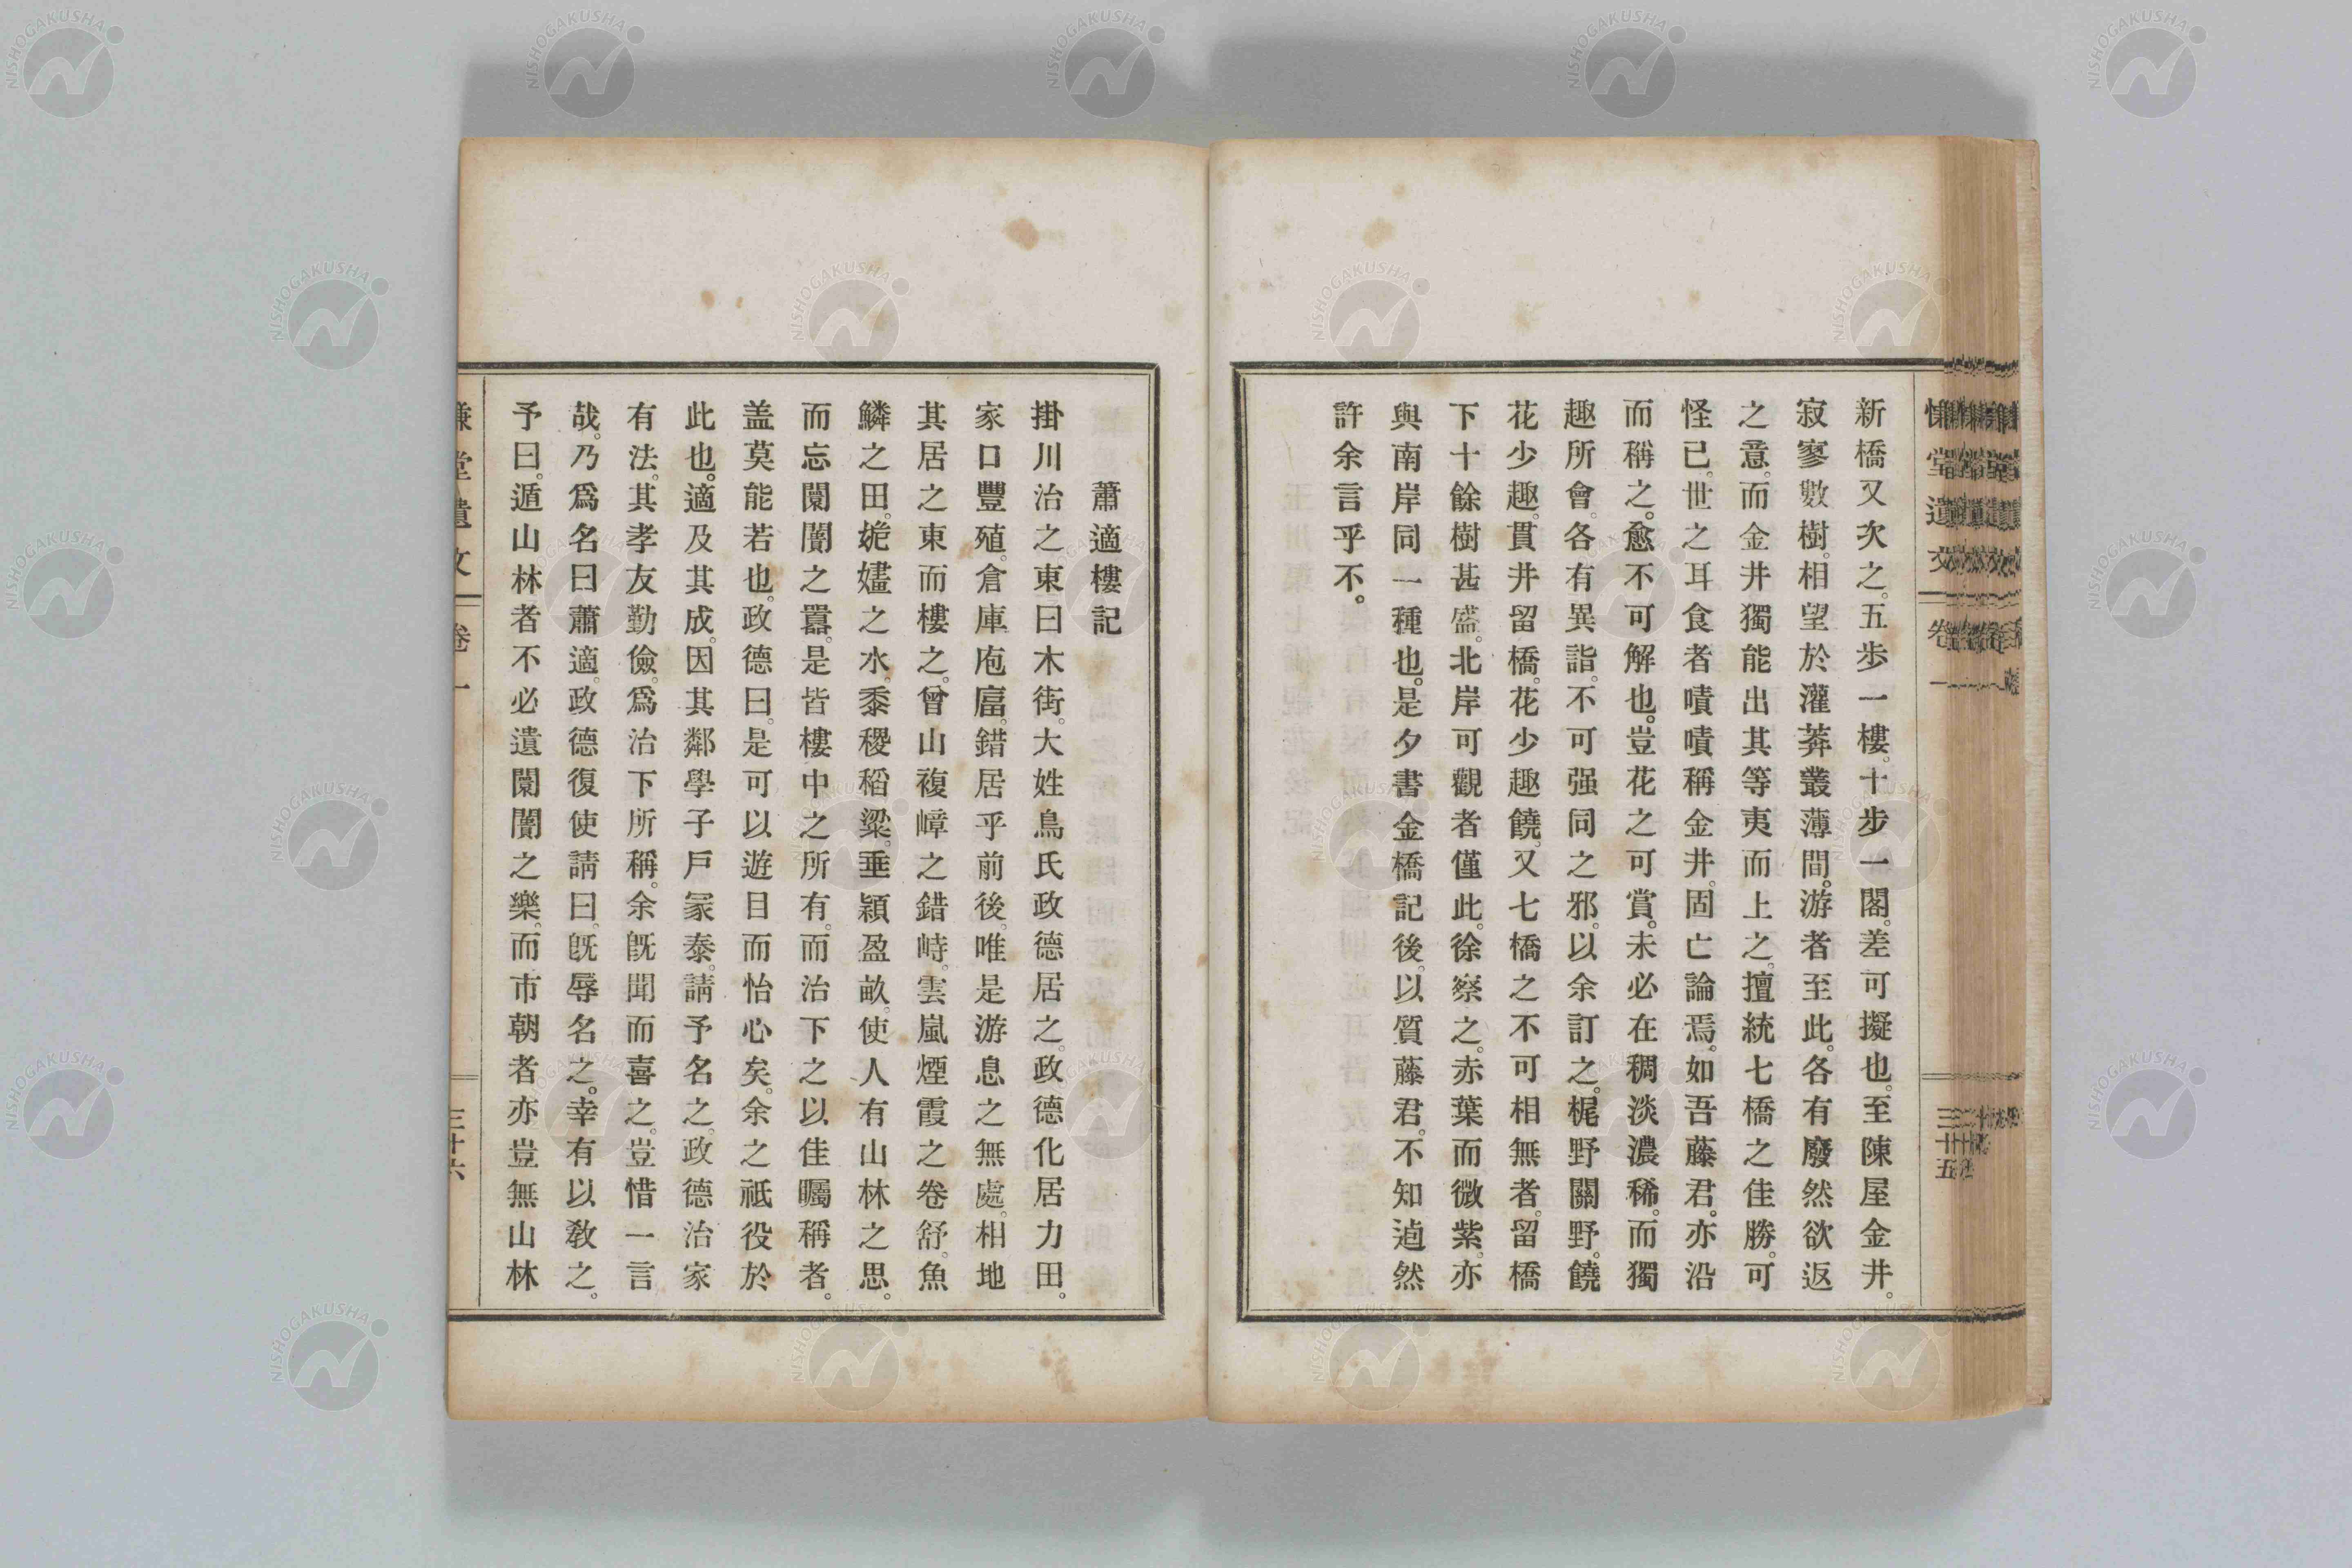 慊堂遺文
卷一
三十五
新橋又次之。五步一樓。十步一閣。差可擬也。至陳屋金井。
寂寥數樹。相望於灌莽叢薄間。游者至此。各有廢然欲返
之意。而金井獨能出其等夷而上之。擅統七橋之佳勝。可
怪已。世之耳食者嘖嘖稱金井。固亡論焉。如吾藤君。亦沿
而稱之。愈不可解也。豈花之可賞。未必在稠淡濃稀。而獨
趣所會。各有異詣。不可强同之邪。以余訂之。梶野關野。饒
花少趣。貫井留橋。花少趣饒。又七橋之不可相無者。留橋
下十餘樹甚盛。北岸可觀者僅此。徐察之。赤葉而微紫。亦
與南岸同一種也。是夕書金橋記後。以質藤君。不知逌然
許余言乎不。
蕭適樓記
掛川治之東曰木街。大姓鳥氏政德居之。政德化居力田。
家口豐殖。倉庫庖廥。錯居乎前後。唯是游息之無處。相地
其居之東而樓之。曾山複嶂之錯峙。雲嵐煙霞之卷舒。魚
鱗之田。㛂嫿之水。黍稷稻粱。垂穎盈畝。使人有山林之思。
而忘闤闠之囂。是皆樓中之所有。而治下之以佳矚稱者。
盖莫能若也。政德曰。是可以遊目而怡心矣。余之祗役於
此也。適及其成。因其鄰學子戶冢泰。請予名之。政德治家
有法。其孝友勤儉。爲治下所稱。余旣聞而喜之。豈惜一言
哉。乃爲名曰蕭適。政德復使請曰。旣辱名之。幸有以敎之。
予曰。遁山林者不必遺闤闠之樂。而市朝者亦豈無山林
慊堂遺文
卷一
三十六